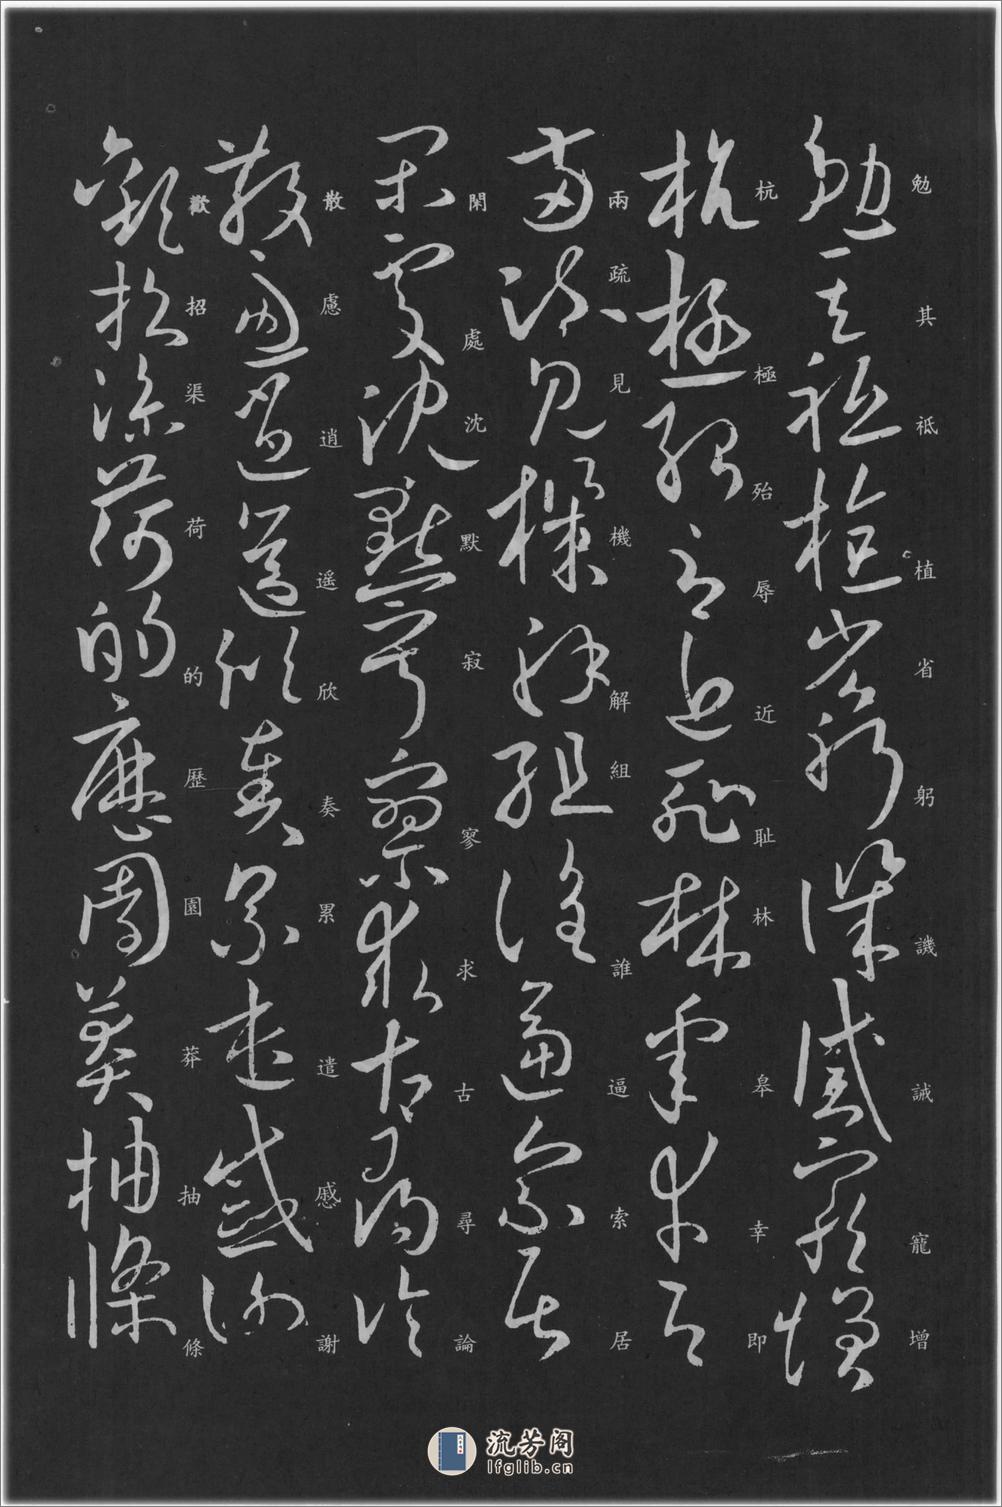 勉其祗植省躬譏誡寵增
杭極殆辱近耻林皋幸即
兩疏見機解組誰逼索居
閑處沈默寂寥求古尋論
散慮逍遥欣奏累遣慼謝
歡招渠荷的歷園莽抽條
流芳阁
lfglib.cn